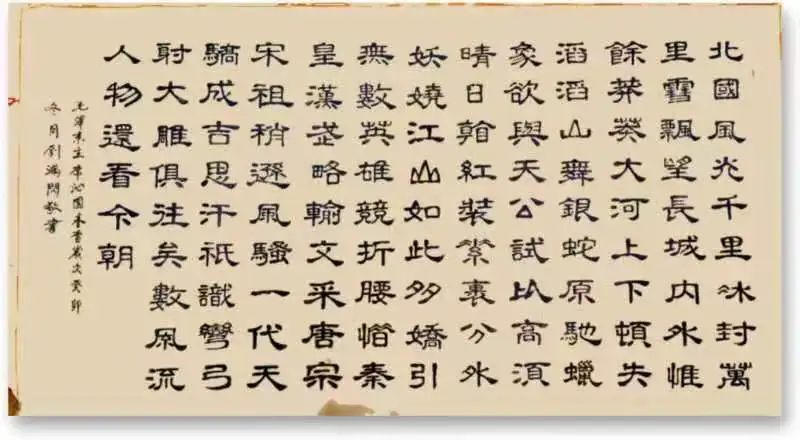 北國風光千里冰封萬
里雪飄望長城內外惟
餘莽莽大河上下頓失
滔滔山舞銀蛇原馳蠟
象欲與天公試比高須
晴日看紅裝素裹分外
妖嬈江山如此多嬌引
無數英雄競折腰惜秦
皇漢武略輸文采唐宗
宋祖稍遜風騷一代天
驕成吉思汗祇識彎弓
射大雕俱往矣數風流
人物還看今朝
毛澤東主席沁園春雪歲次癸卯
冬月劉敬書